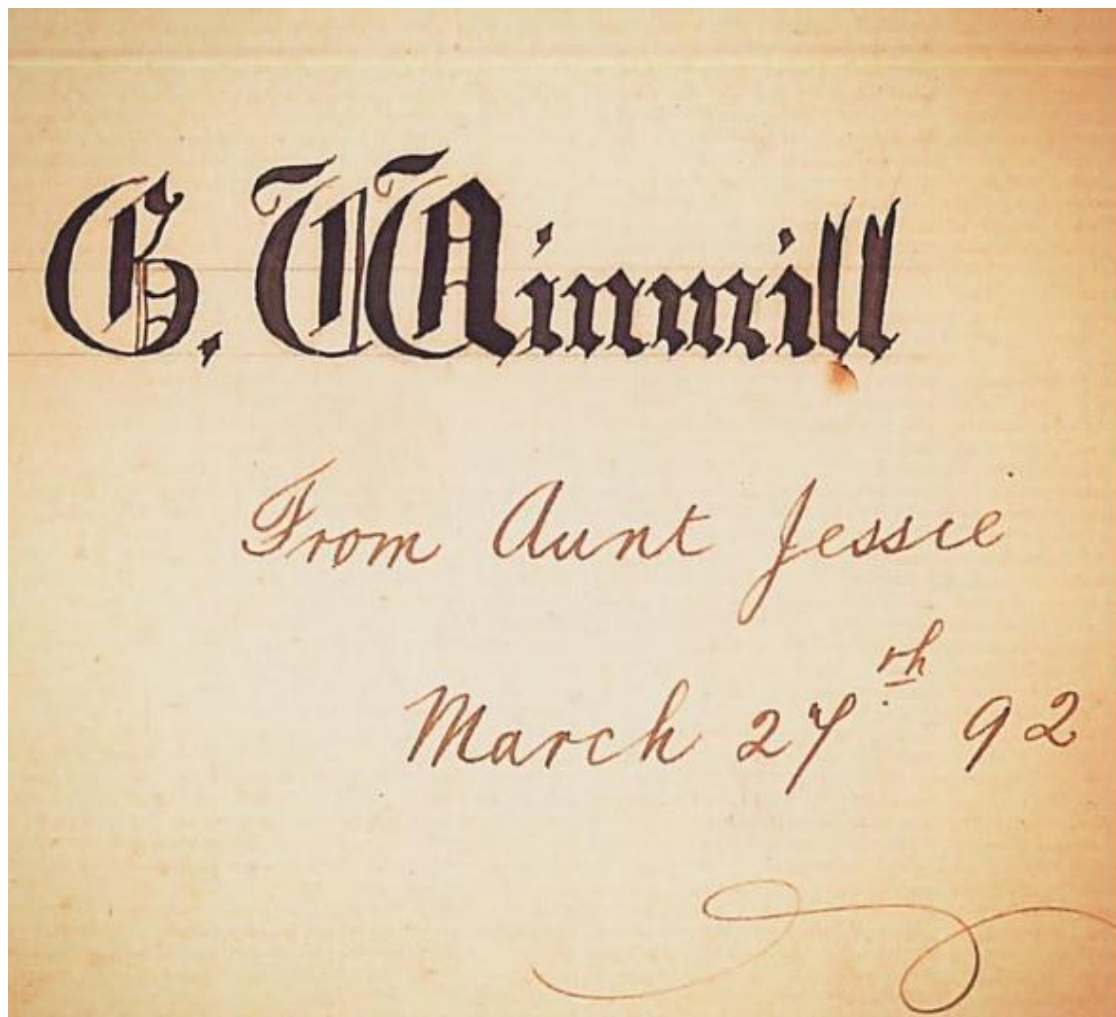 G. Winmill
From Aunt Jessie
March 27th 92